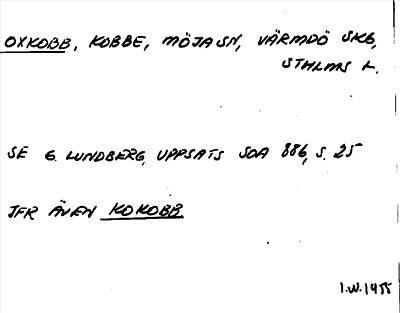 OXKOBB, KOBBE, MÖJA SN, VÄRMDÖ SKG,
STHLMS L.
SE G. LUNDBERG, UPPSATS SOA 886, S. 25
JFR ÄVEN KOKOBB
I.W. 1955